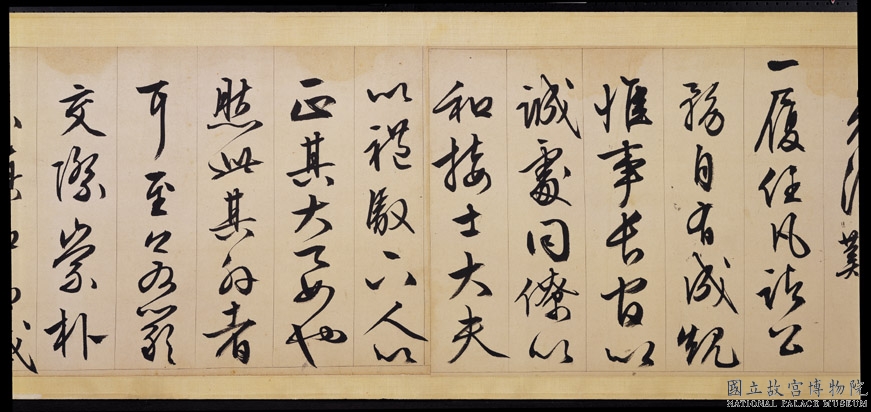 一履任凡訪公
務自有成規
惟事長官以
誠處同僚以
和接士大夫
以禮馭下人以
正其大要也
然此其外者
耳至
交際崇朴
國立故宮博物院
NATIONAL PALACE MUSEUM